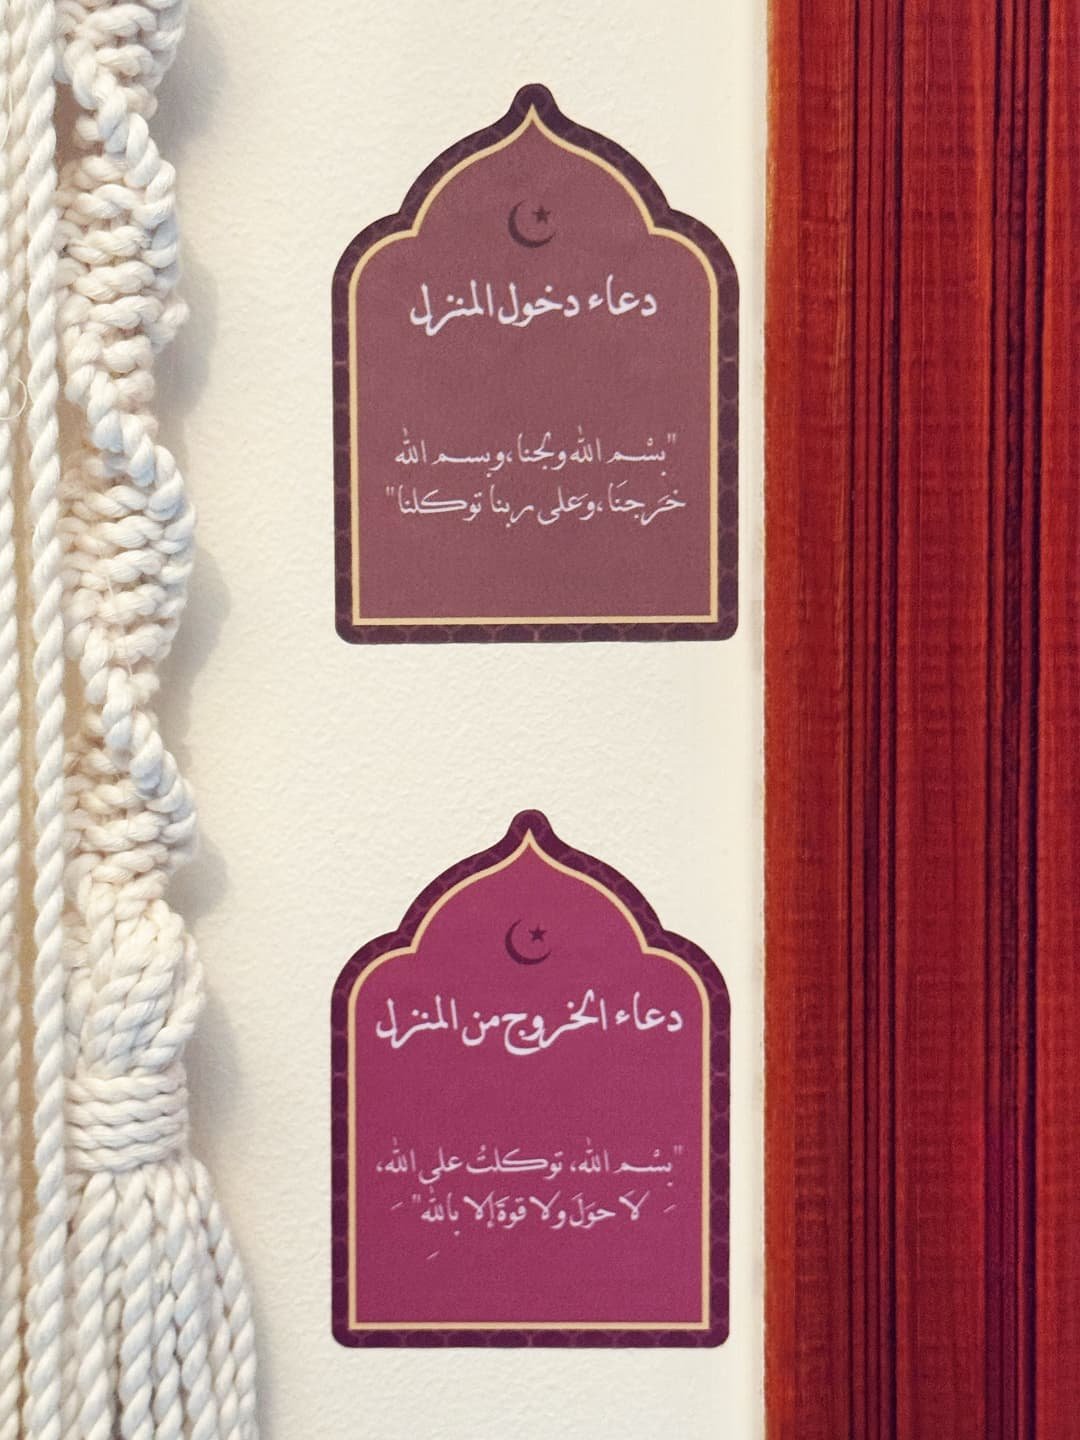 دعاء دخول المنزل
"بسْم الله ولجنا، وبسم الله
خرَجنَا، وعَلى ربنا توكلنا"
دعاء الخروج من المنزل
"بِسْم الله، توكلتُ على الله،
لاَ حوَلَ ولا قوةَ إلا بالله"